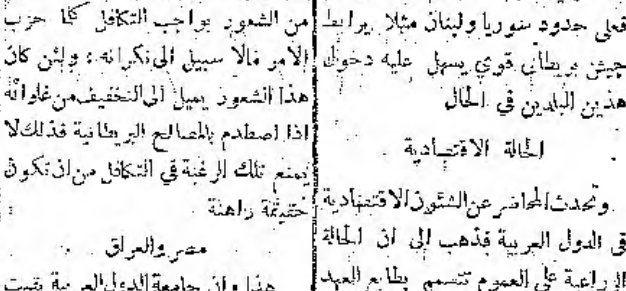 فعلى حدود سوريا ولبنان مثلا يرابط
جيش بريطاني قوي يسهل عليه دخول
هذين البلدين في الحال
الحالة الاقتصادية
وتحدث المحاضر عن الشئون الاقتصادية
في الدول العربية فذهب الى ان الحالة
الزراعية على العموم تتسم بطابع العهد
من الشعور بواجب التكافل كلما حزب
الامر مالا سبيل الى نكرانه ؛ ولئن كان
هذا الشعور يميل الى التخفيف من غلوائه
اذا اصطدم بالمصالح البريطانية فذلك لا
يمنع تلك الرغبة في التكافل من ان تكون
حقيقة راهنة
مصر والعراق
هذا وان جامعة الدول العربية بقيت